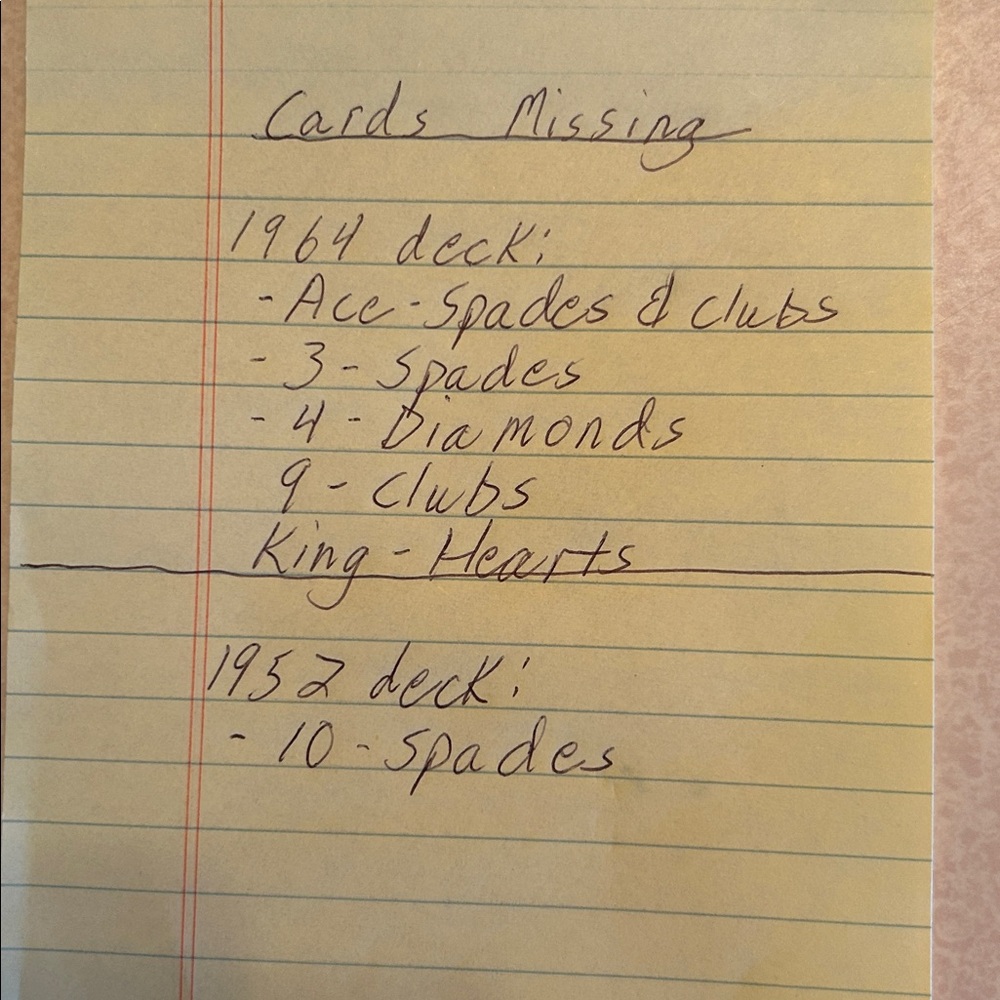 Cards Missing
1964 deck:
- Ace - Spades & Clubs
- 3 - Spades
- 4 - Diamonds
9 - Clubs
King - Hearts
1952 deck:
- 10 - Spades